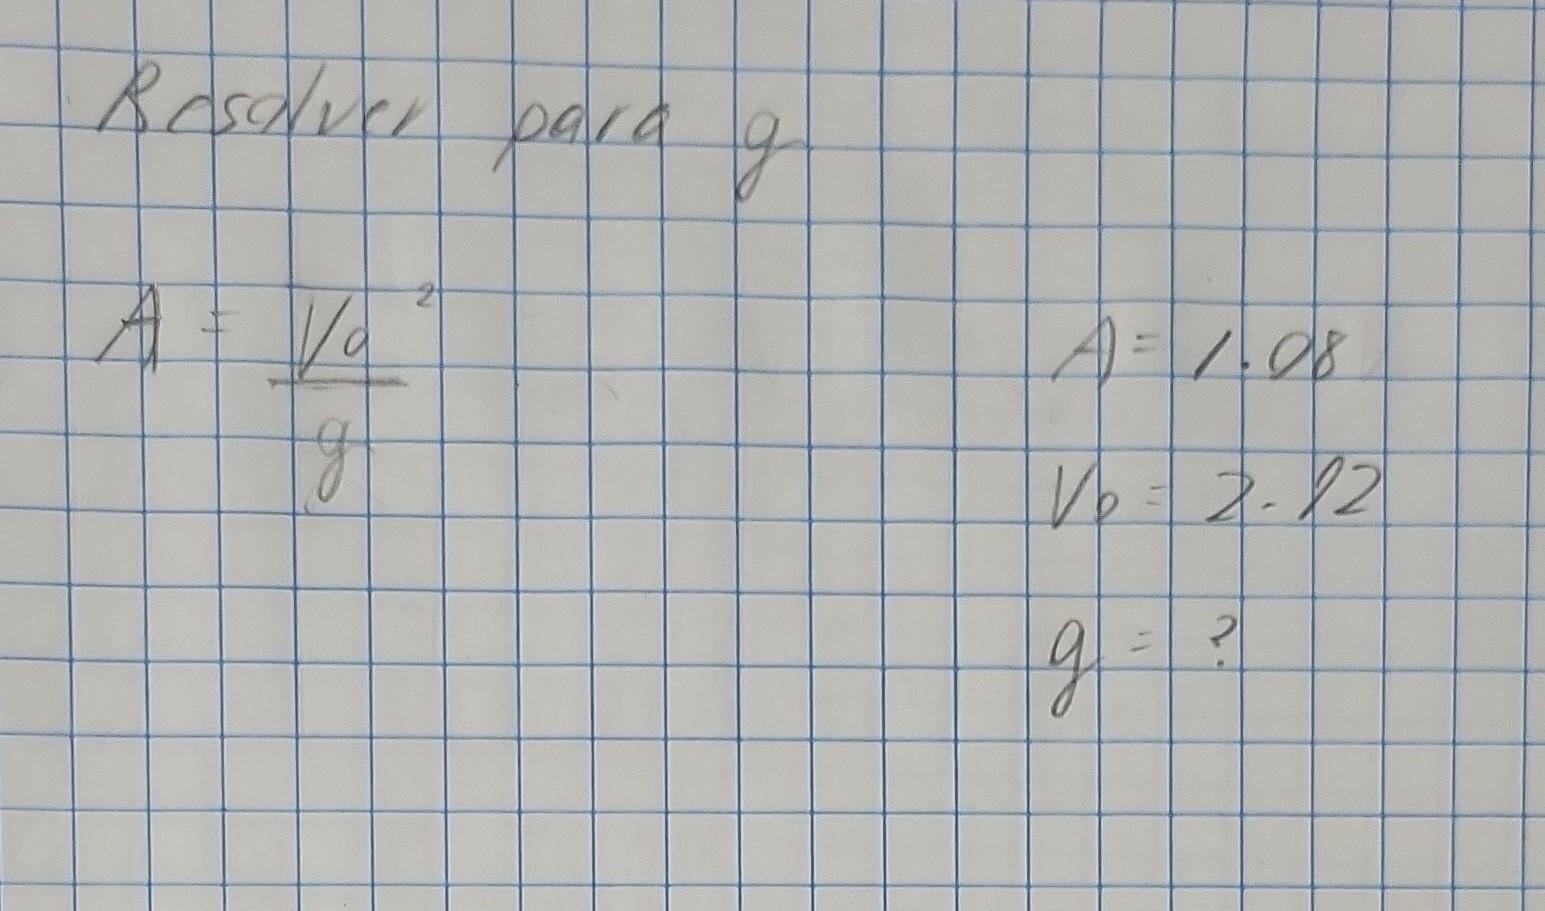 Resolver para g
A = Vo²
g
A = 1.08
Vo = 2.12
g = ?